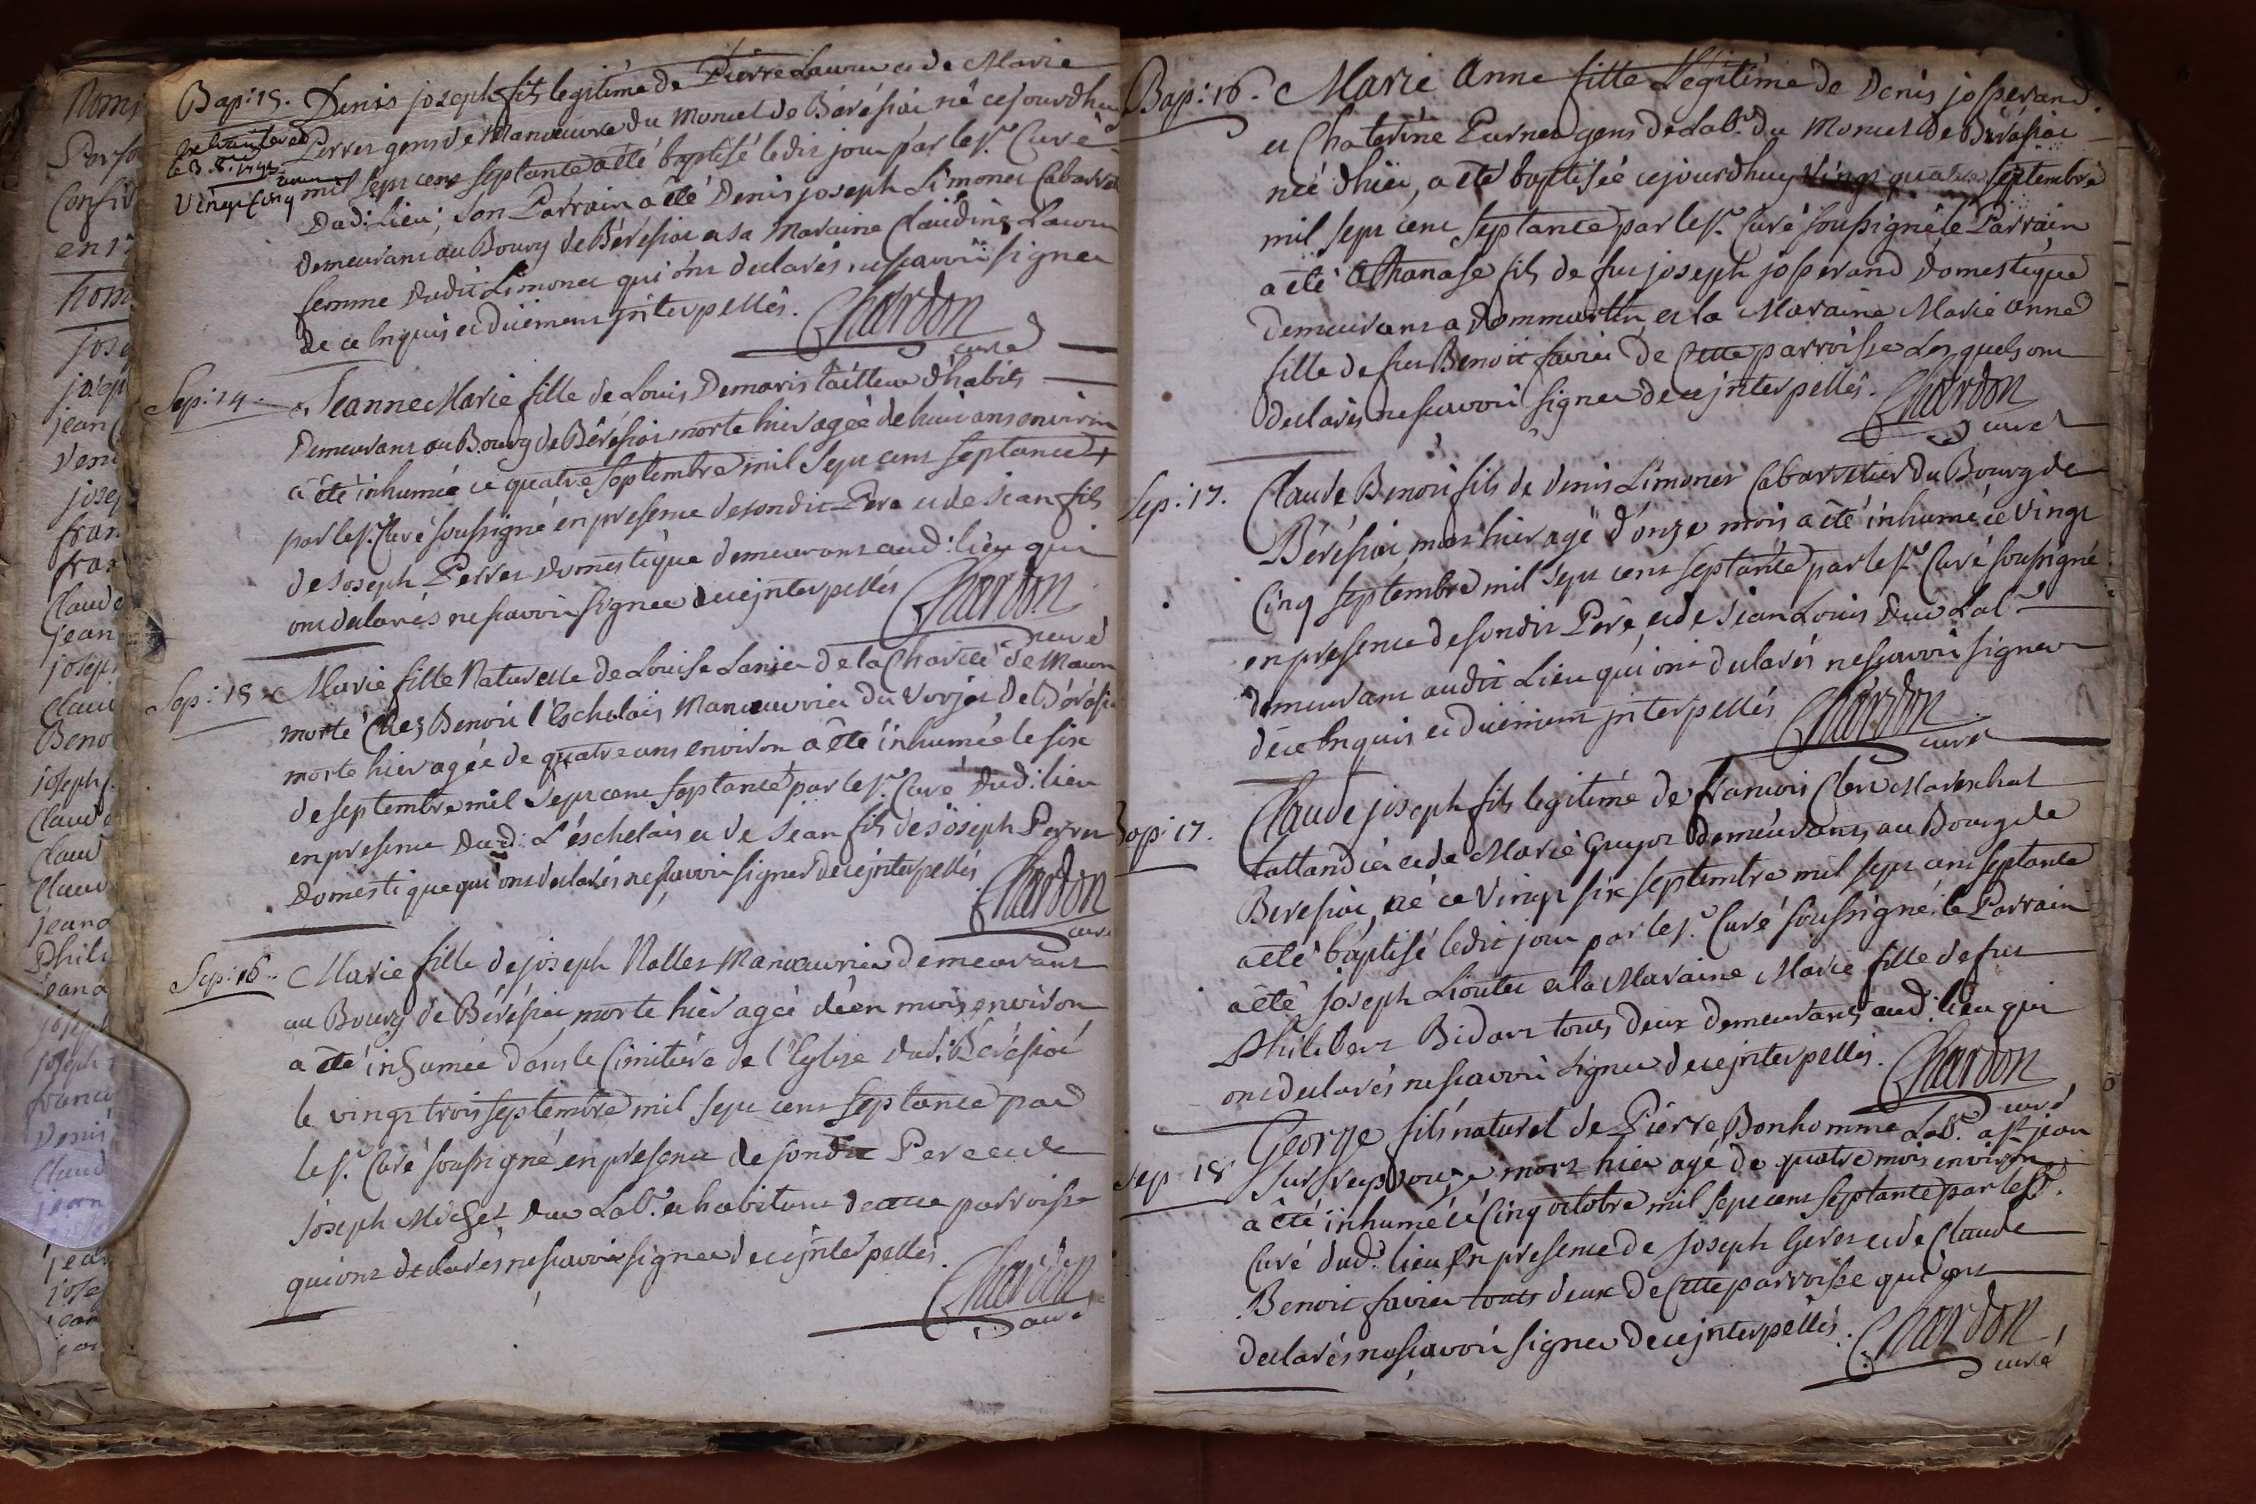 Bap: 15. Denis joseph fils legitime de Pierre Laurin et de Marie
Perret gens de Manœuvre du Moncel de Béréziat né cejourdhui
le 3.
Vingt Cinq mil sept cent septante a été baptisé ledit jour par le Sr. Curé
Dud: Lieu; son Parrain a été Denis joseph Limonet Cabaret
demeurant au Bourg de Béréziat et sa Maraine Claudine Laurin
femme dudit Limonet qui ont declarés ne scavoir signer
de ce Enquis et düement jnterpellés. Chardon
curé
Sep: 14. Jeanne Marie fille de Louis Demaris tailleur d'habits
Demeurant au Bourg de Béréziat morte hier agée de huit ans environ
a été inhumée ce quatre Septembre mil Sept cent septante
par le Sr. Curé soussigné en presence de sondit Pere et de Jean fils
de Joseph Perret domestique demeurant aud: lieu qui
ont declarés ne scavoir signer de ce jnterpellés Chardon
curé
Sep: 15. Marie fille Naturelle de Louise Lanier de la Charité de Macon
morte Chez Benoit l'Eschelais Manœuvrier du Verjat de Béréziat
morte hier agée de quatre ans environ a été inhumée le six
de septembre mil sept cent septante par le Sr. Curé dud: lieu
en presence dud: L'éschelais et de Jean fils de joseph Perret
domestique qui ont declarés ne scavoir signer de ce jnterpellés
Chardon
curé
Sep: 16. Marie fille de joseph Nallet Manœuvrier demeurant
au Bourg de Béréziat morte hier agée d'un mois environ
a été inhumée dans le Cimitière de l'Eglise dud: Béréziat
le vingt trois septembre mil sept cent septante par
le Sr. Curé soussigné en presence de sondit Pere et de
joseph Michet Duc Labr. et habitant de cette parroisse
qui ont declarés ne scavoir signer de ce jnterpellés.
Chardon
curé
Bap: 16. Marie Anne fille Légitime de Denis josserand
et Chaterine Parnet gens de Labr. du Moncel de Béréziat
née d'hier, a été baptisée cejourdhuy Vingt quatre septembre
mil sept cent septante par le Sr. Curé soussigné le Parrain
a été Athanase fils de feu joseph josserand domestique
demeurant a dommartin et la Maraine Marie anne
fille de feu Benoit favier de Cette parroisse Lesquels ont
declarés ne scavoir signer de ce jnterpellés. Chardon
curé
Sep: 17. Claude Benoit fils de Denis Limonet Cabarretier du Bourg de
Béréziat, mort hier agé d'onze mois a été inhumé ce Vingt
Cinq septembre mil sept cent septante par le Sr. Curé soussigné
en presence de sondit Pere et de Jean Louis Duc Labr.
demeurant audit Lieu qui ont declarés ne scavoir signer
de ce Enquis et düement jnterpellés Chardon
curé
Bap: 17. Claude joseph fils legitime de francois Clerc Mareschal
tattandier et de Marie Guyot demeurants au Bourg de
Béréziat, né ce Vingt six septembre mil sept cent septante
a été baptisé ledit jour par le Sr. Curé soussigné, le Parrain
a été joseph Lioutet et la Maraine Marie fille de feu
Philibert Bidart tous deux demeurants aud: lieu qui
ont declarés ne scavoir signer de ce jnterpellés. Chardon
curé
Sep: 18. George fils naturel de Pierre Bonhomme Labr. a St jean
sur reyssouze mort hier agé de quatre mois environ
a été inhumé le Cinq octobre mil sept cent septante par le Sr.
Curé dud: lieu en presence de joseph Geret et de Claude
Benoit favier tous deux de Cette parroisse qui ont
declarés ne scavoir signer de ce jnterpellés. Chardon
curé